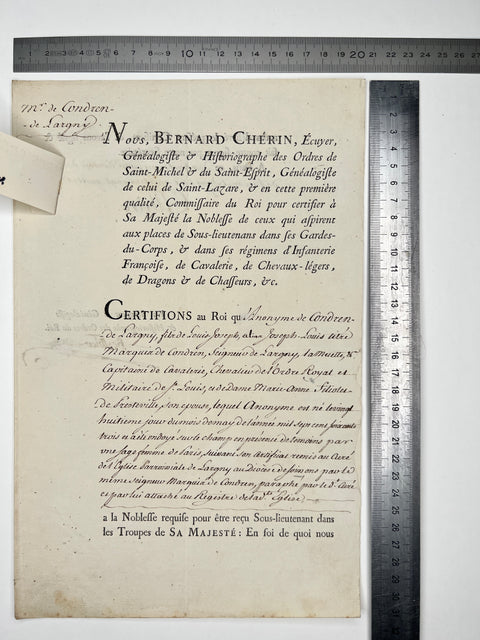 Mr. de Condren-
de Largny.
Nous, BERNARD CHÉRIN, Écuyer,
Généalogiſte & Hiſtoriographe des Ordres de
Saint-Michel & du Saint-Eſprit, Généalogiſte
de celui de Saint-Lazare, & en cette première
qualité, Commiſſaire du Roi pour certifier à
Sa Majeſté la Nobleſſe de ceux qui aſpirent
aux places de Sous-lieutenans dans ſes Gardes-
du-Corps, & dans ſes régimens d'Infanterie
Françoiſe, de Cavalerie, de Chevaux-légers,
de Dragons & de Chaſſeurs, &c.
CERTIFIONS au Roi qu'Anonyme de Condren-
de Largny, fils de Louis Joseph, Joseph-Louis titré
Marquis de Condren, Seigneur de Largny, la Muette, &
Capitaine de Cavalerie, Chevalier de l'Ordre Royal et
Militaire de St. Louis, et de dame Marie-Anne
son épouse, lequel Anonyme est né le vingt
huitième jour du mois de may de l'année mil sept cent soixante
trois et a été ondoyé sur le champ en présence de temoins par
une sage femme de Paris, suivant son Certificat remis au Curé
de l'Eglise Parroissiale de Largny par le
même Seigneur Marquis de Condren, paraphé par le d. Curé
et par lui attaché au Registre de lad. Eglise
a la Nobleſſe requiſe pour être reçu Sous-lieutenant dans
les Troupes de SA MAJESTÉ: En foi de quoi nous
1 2 3 4 5 6 7 8 9 10 11 12 13 14 15 16 17 18 19 20 21 22 23 24 25 26 27
2 3 4 5 6 7 8 9 10 11 12 13 14 15 16 17 18 19 20 21 22 23 24 25 26 27 28 29 30 31